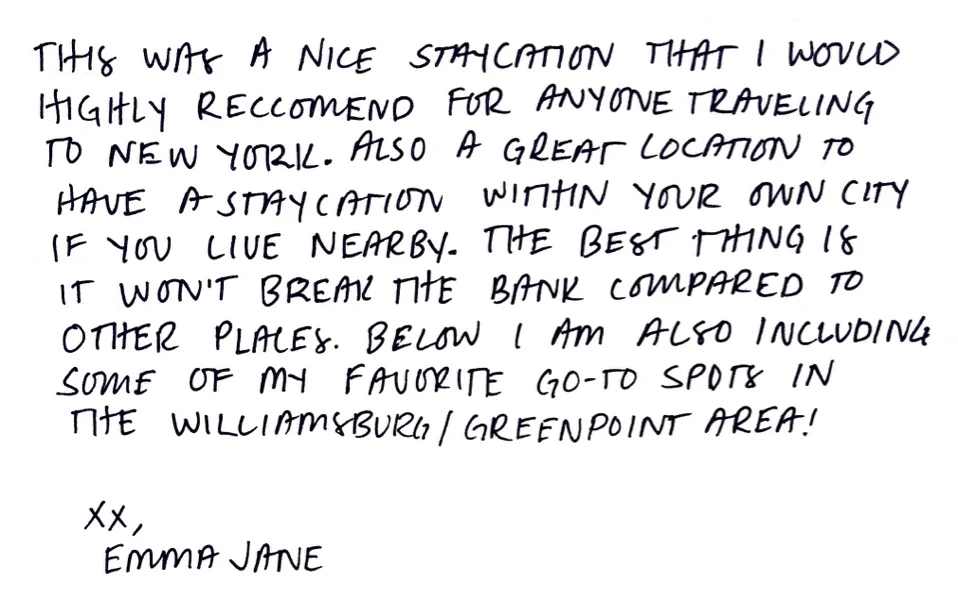 THIS WAS A NICE STAYCATION THAT I WOULD
HIGHLY RECCOMEND FOR ANYONE TRAVELING
TO NEW YORK. ALSO A GREAT LOCATION TO
HAVE A STAYCATION WITHIN YOUR OWN CITY
IF YOU LIVE NEARBY. THE BEST THING IS
IT WON'T BREAK THE BANK COMPARED TO
OTHER PLACES. BELOW I AM ALSO INCLUDING
SOME OF MY FAVORITE GO-TO SPOTS IN
THE WILLIAMSBURG/GREENPOINT AREA!
XX,
EMMA JANE